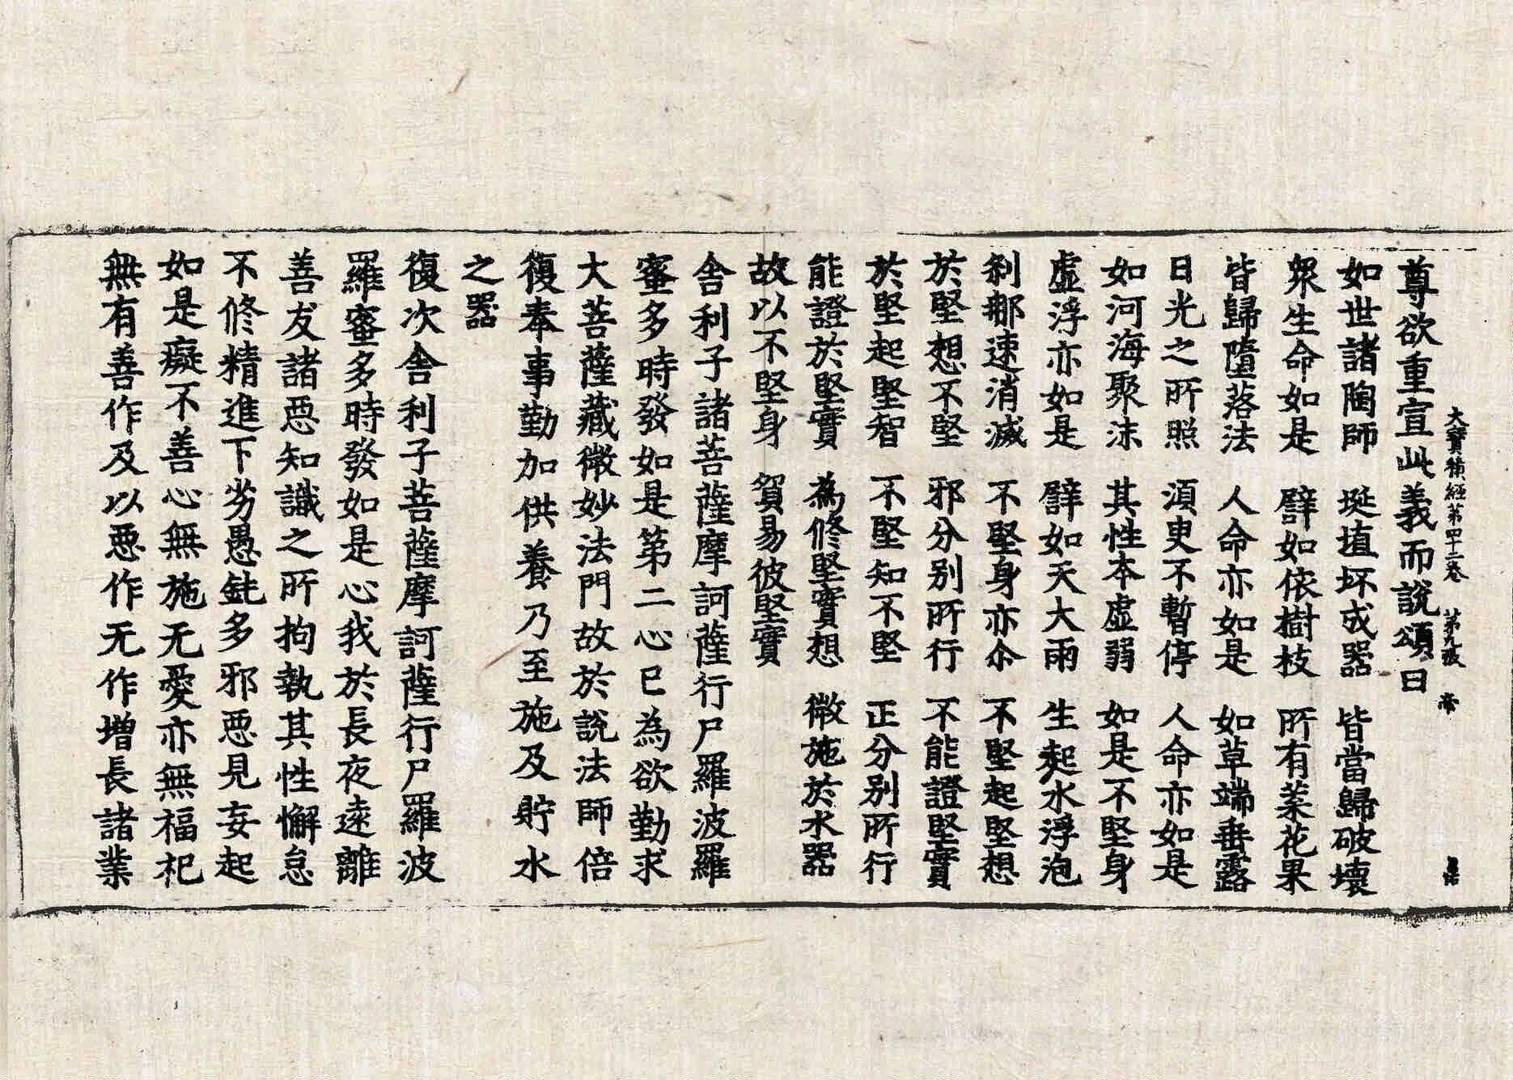 大寶積經第四十二卷　第九張　帝
尊欲重宣此義而說頌曰
如世諸陶師　埏埴坏成器　皆當歸破壞
衆生命如是　譬如依樹枝　所有葉花果
皆歸墮落法　人命亦如是　如草端垂露
日光之所照　湏臾不暫停　人命亦如是
如河海聚沫　其性本虛弱　如是不堅身
虛浮亦如是　譬如天大雨　生起水浮泡
剎那速消滅　不堅身亦尒　不堅起堅想
於堅想不堅　邪分別所行　不能證堅實
於堅起堅智　不堅知不堅　正分別所行
能證於堅實　為修堅實想　微施於水器
故以不堅身　貿易彼堅實
舍利子諸菩薩摩訶薩行尸羅波羅
蜜多時發如是第二心已為欲勤求
大菩薩藏微妙法門故於說法師倍
復奉事勤加供養乃至施及貯水
之器
復次舍利子菩薩摩訶薩行尸羅波
羅蜜多時發如是心我於長夜遠離
善友諸惡知識之所拘執其性懈怠
不修精進下劣愚鈍多邪惡見妄起
如是癡不善心無施无愛亦無福祀
無有善作及以惡作无作增長諸業